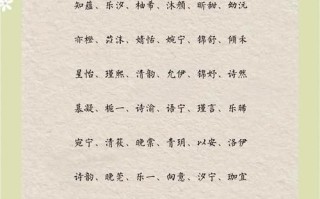 知蕴、乐汐、柚希、沐颜、昕甜、幼沅
亦橙、苡沫、婧恬、婉宁、锦舒、倾禾
星怡、瑾熙、清韵、允伊、锦妤、诗然
慕凝、栀一、诗渝、语宁、瑾言、乐晞
宛宁、清莜、晚棠、青玥、以安、洛伊
诗韵、晚莞、乐一、向意、汐宁、珈宜